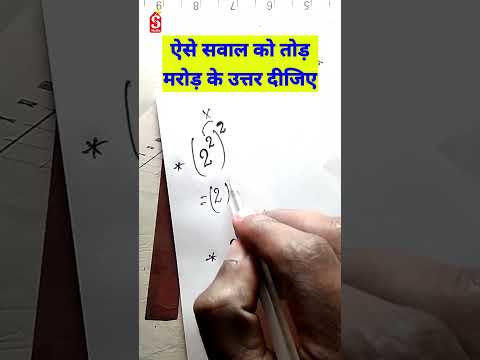 S
ऐसे सवाल को तोड़
मरोड़ के उत्तर दीजिए
×
* (2²)²
= (2)
*